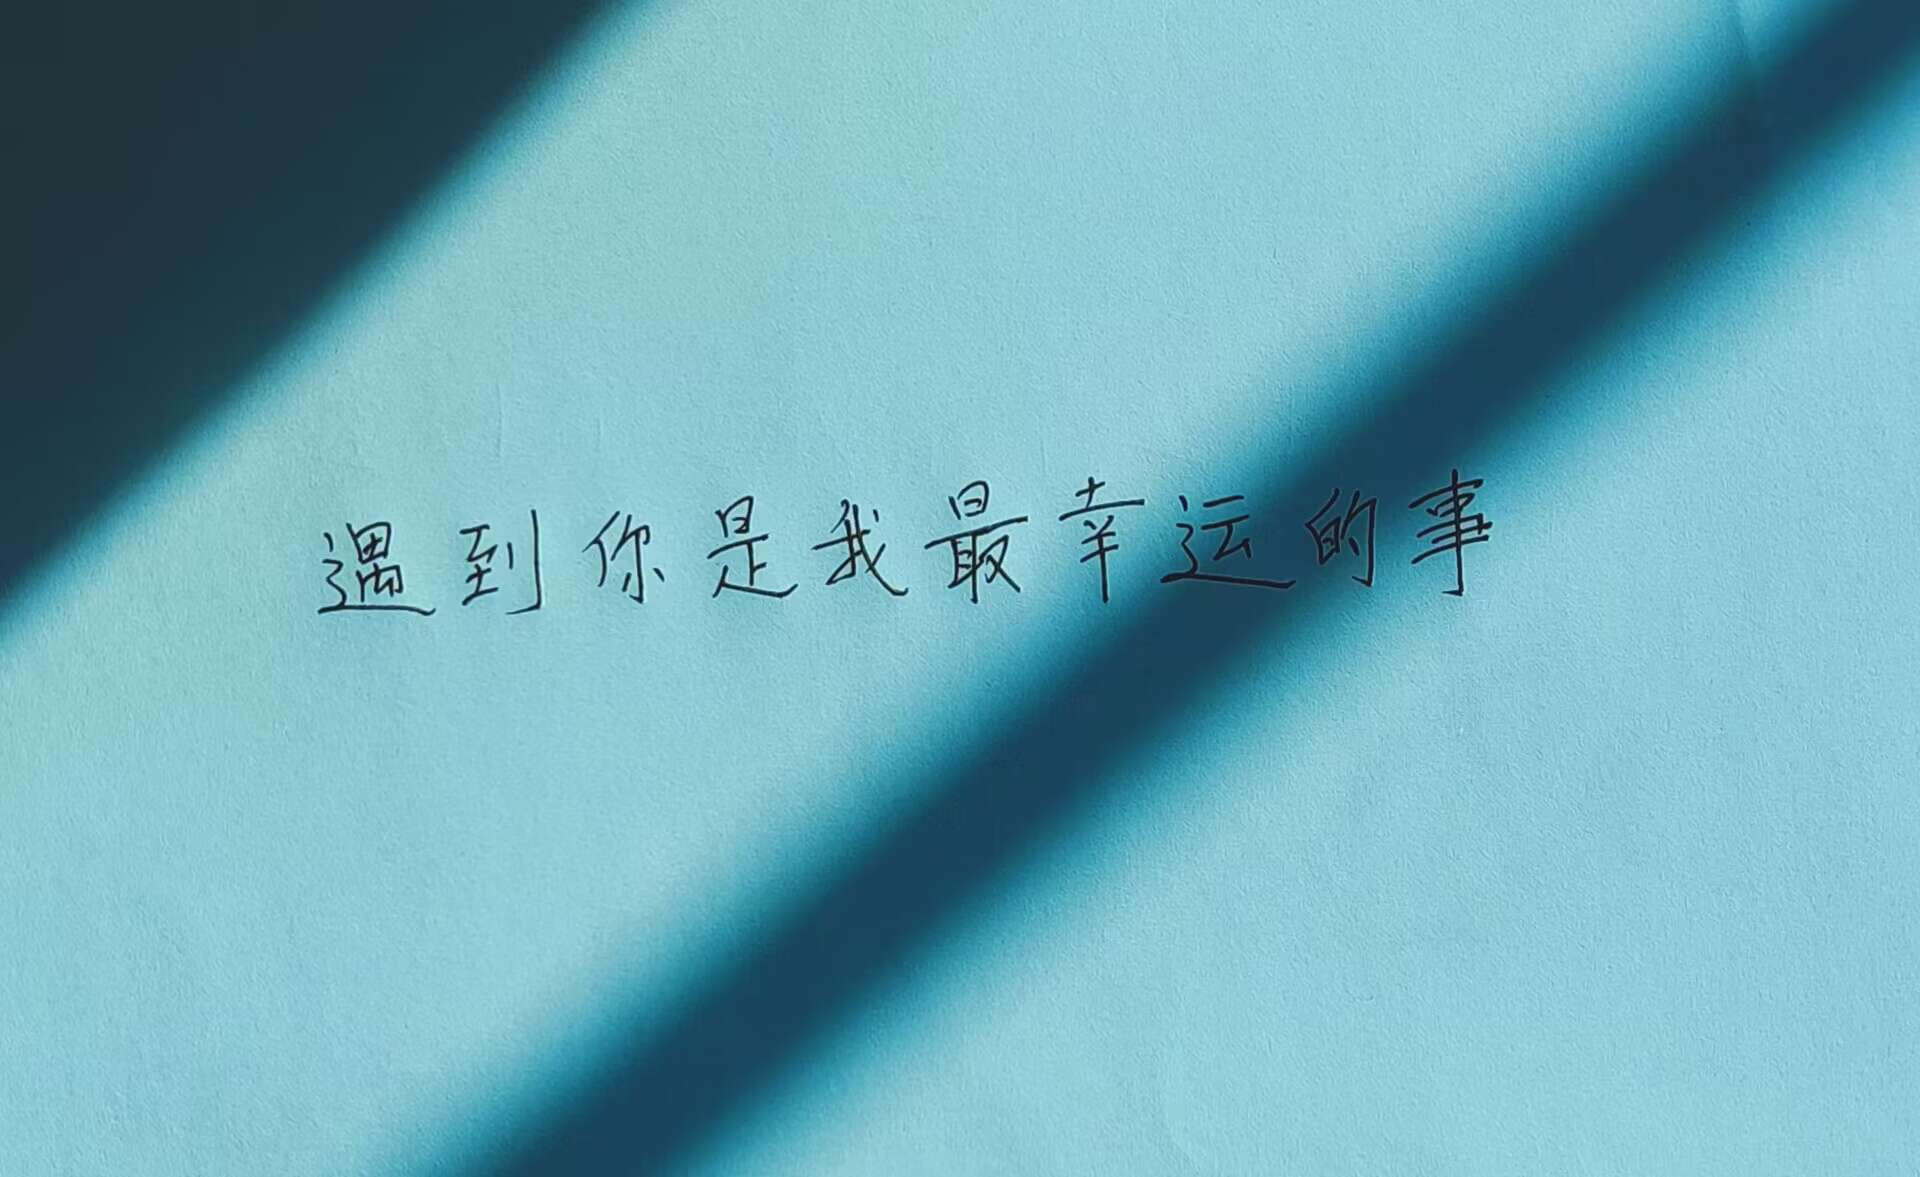 遇到你是我最幸运的事